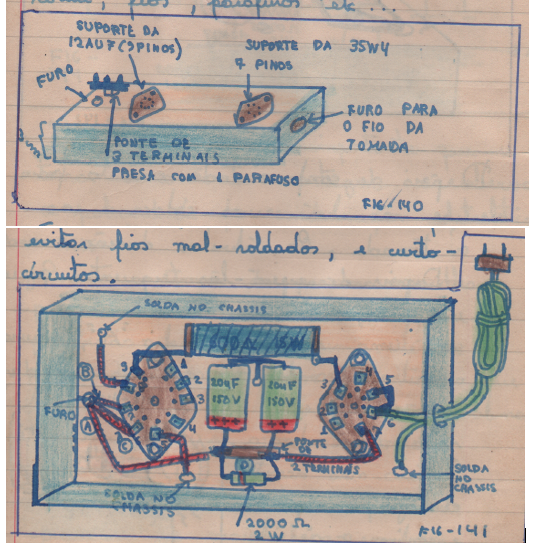 fios, parafusos etc...
SUPORTE DA
12AU7 (9 PINOS)
SUPORTE DA 35W4
7 PINOS
FURO
FURO PARA
O FIO DA
TOMADA
PONTE DE
3 TERMINAIS
PRESA COM 1 PARAFUSO
FIG-140
evitar fios mal-soldados, e curto-
circuitos.
SOLDA NO CHASSIS
9
1
2
3
4
5
3
4
5
2
6
1
7
20uF
150V
20uF
150V
B
FURO
A
C
PONTE DE
2 TERMINAIS
SOLDA NO
CHASSIS
SOLDA
NO
CHASSIS
2000 Ω
2 W
FIG-141